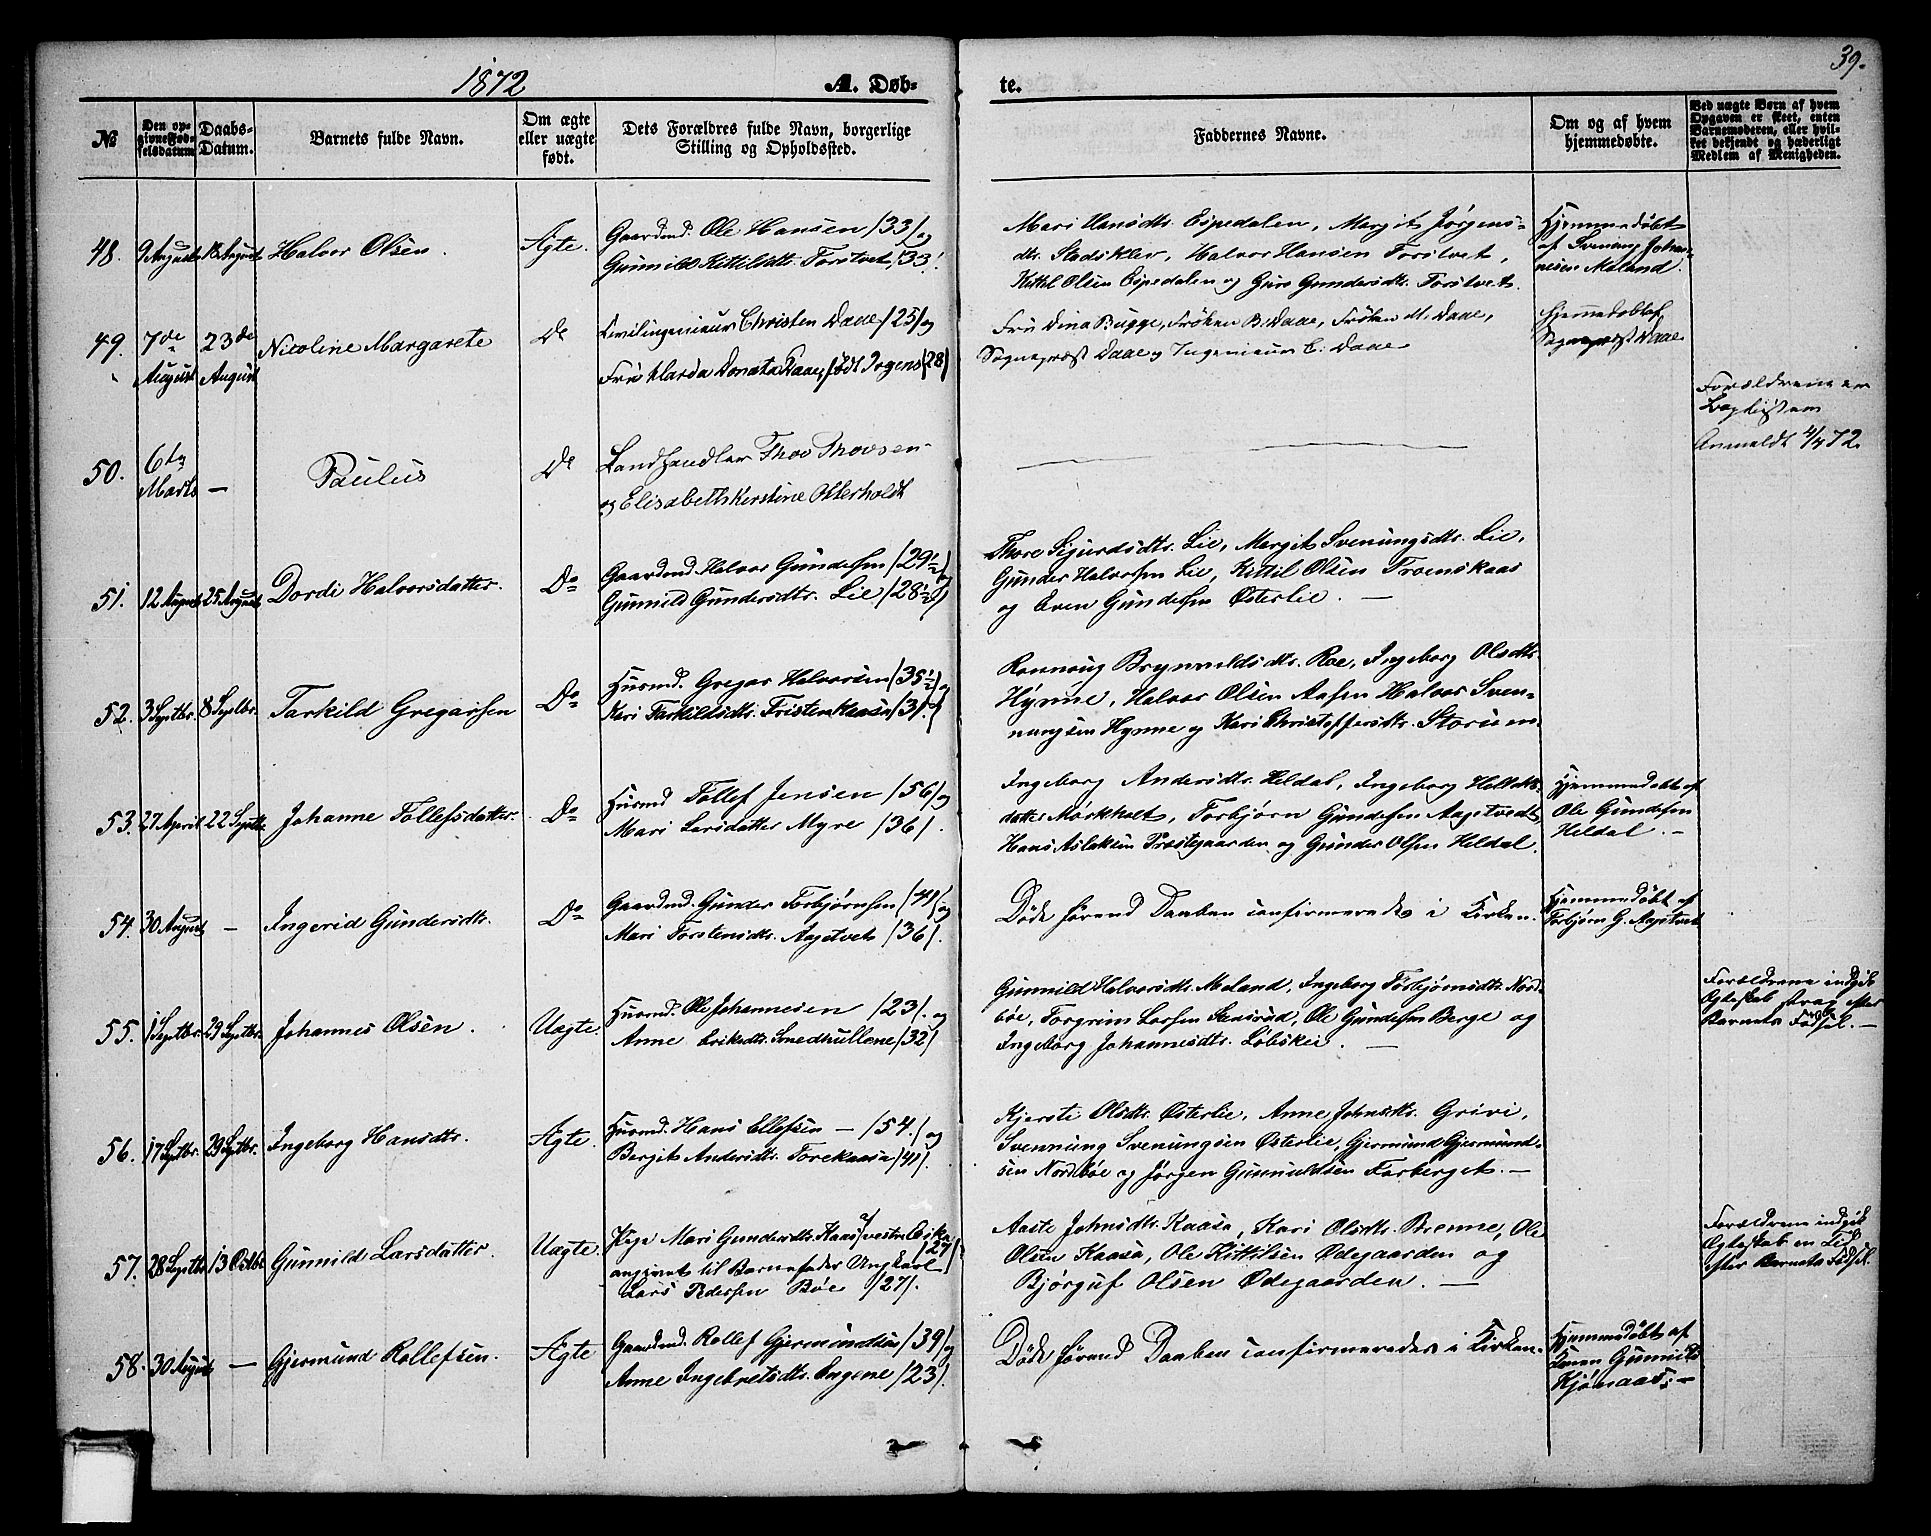 1872
A. Døb-
te.
39.
№
Den op-
givne Fød-
selsdatum
Daabs-
Datum.
Barnets fulde Navn.
Om ægte
eller uægte
født.
Dets Forældres fulde Navn, borgerlige
Stilling og Opholdssted.
Faddernes Navne.
Om og af hvem
hjemmedøbte.
Ved uægte Børn af hvem
Opgaven er skeet, enten
Barnemoderen, eller hvil-
ket bekjendt og hæderligt
Medlem af Menigheden.
48.
9 August
18 August
Halvor Olsen.
Ægte.
Gaardmd. Ole Hansen /33/ og
Gunnild Kittilsdtr. Torstvet /33/.
Mari Hansdtr. Espedalen, Margit Jørgens-
dtr. Stadsklev, Halvor Hansen Torstvet,
Kittil Olsen Espedalen og Guro Gundersdtr. Torstvet.
Hjemmedøbt
af Svenung Johan-
nesen Moland.
49.
7de
August
23de
August
Nicoline Margarete
Do
Civilingenieur Christen Daae /25/ og
Fru Marda Donata Daae, født Jrgens /28/
Fru Dina Bugge, Frøken B. Daae, Frøken M. Daae,
Sognepræst Daae og Ingenieur C. Daae
Hjemmedøbt af
Sognepræst Daae
50.
6te
Marts
—
Paulus
Do
Landhandler Thov Thovsen
og Elisabeth Kirstine Otterholdt
Forældrene er
Baptister
Anmeldt 4/9 72.
51.
12 August
25 August
Dordi Halvorsdatter.
Do
Gaardmd. Halvor Gundersen /29½/ og
Gunnild Gundersdtr. Lie /28½/
Thore Sigurdsdtr. Lie, Margit Svenungsdtr. Lie,
Gunder Halvorsen Lie, Kittil Olsen Tromskaas
og Even Gundersen Østerlie. —
52.
3 Septbr.
8 Septbr.
Tarkild Gregarsen
Do
Husmd. Gregar Halvorsen /35½/ og
Kari Tarkildsdtr. Tristenkaasa /31/.
Rannoug Brynnildsdtr. Roe, Ingeborg Olsdtr.
Hynne, Halvor Olsen Aasen Halvor Sven-
nungsen Hynne og Kari Christoffersdtr. Storiem.
53.
27 April
22 Septbr.
Johanne Tollefsdatter.
Do
Husmd Tollef Jensen /56/ og
Mari Larsdatter Myre /36/.
Ingeborg Andersdtr. Heldal, Ingeborg Helleks-
datter Mørkholt, Torbjørn Gundersen Aagetvedt,
Hans Aslaksen Præstegaarden og Gunder Olsen Heldal.
Hjemmedøbt af
Ole Gundersen
Heldal. —
54.
30 August
—
Ingerid Gundersdtr.
Do
Gaardmd. Gunder Torbjørnsen /49/ og
Mari Torstensdtr. Aagetvet /36/.
Døde førend Daaben confirmeredes i Kirken.
Hjemmedøbt af
Torbjørn G. Aagetvet
55.
1 Septbr.
29 Septbr.
Johannes Olsen.
Uægte.
Husmd. Ole Johannesen /23/. og
Anne Eriksdtr. Smedhullene /32/
Gunnild Halvorsdtr. Moland, Ingeborg Torbjørnsdtr. Nord-
bøe, Torgrim Larsen Stensrud, Ole Gundersen Berge og
Ingeborg Johannesdtr. Løbskei. —
Forældrene indgik
Ægteskab strax efter
Barnets Fødsel. —
56.
17 Septbr.
29 Septbr.
Ingeborg Hansdtr.
Ægte.
Husmd. Hans Ellefsen — /54./ og
Bergit Andersdtr. Torekaasa /41/.
Kjersti Olsdtr. Østerlie, Anne Johnsdtr. Grivi,
Svennung Svenungsen Østerlie, Gjermund Gjermund-
sen Nordbøe og Jørgen Gunnuldsen Farberget. —
57.
28 Septbr
13 Octbr
Gunnild Larsdatter.
Uægte.
Pige Mari Gundersdtr. Kaasa /27/
angivet til Barnefader Ungkarl
Lars Pedersen Bøe /27/.
Aaste Johnsdtr. Kaasa, Kari Olsdtr. Brenne, Ole
Olsen Kaasa, Ole Kittilsen Ødegaarden og
Bjørguf Olsen Ødegaarden. —
Forældrene indgik
Ægteskab en Tid
efter Barnets Fødsel.
58.
30 August
—
Gjermund Rollefsen.
Ægte
Gaardmd. Rollef Gjermundsen /39/ og
Anne Ingebretsdtr. Ongene /23/.
Døde førend Daaben confirmeredes i Kirken.
Hjemmedøbt af
Konen Gunnild
Kjønaas. —